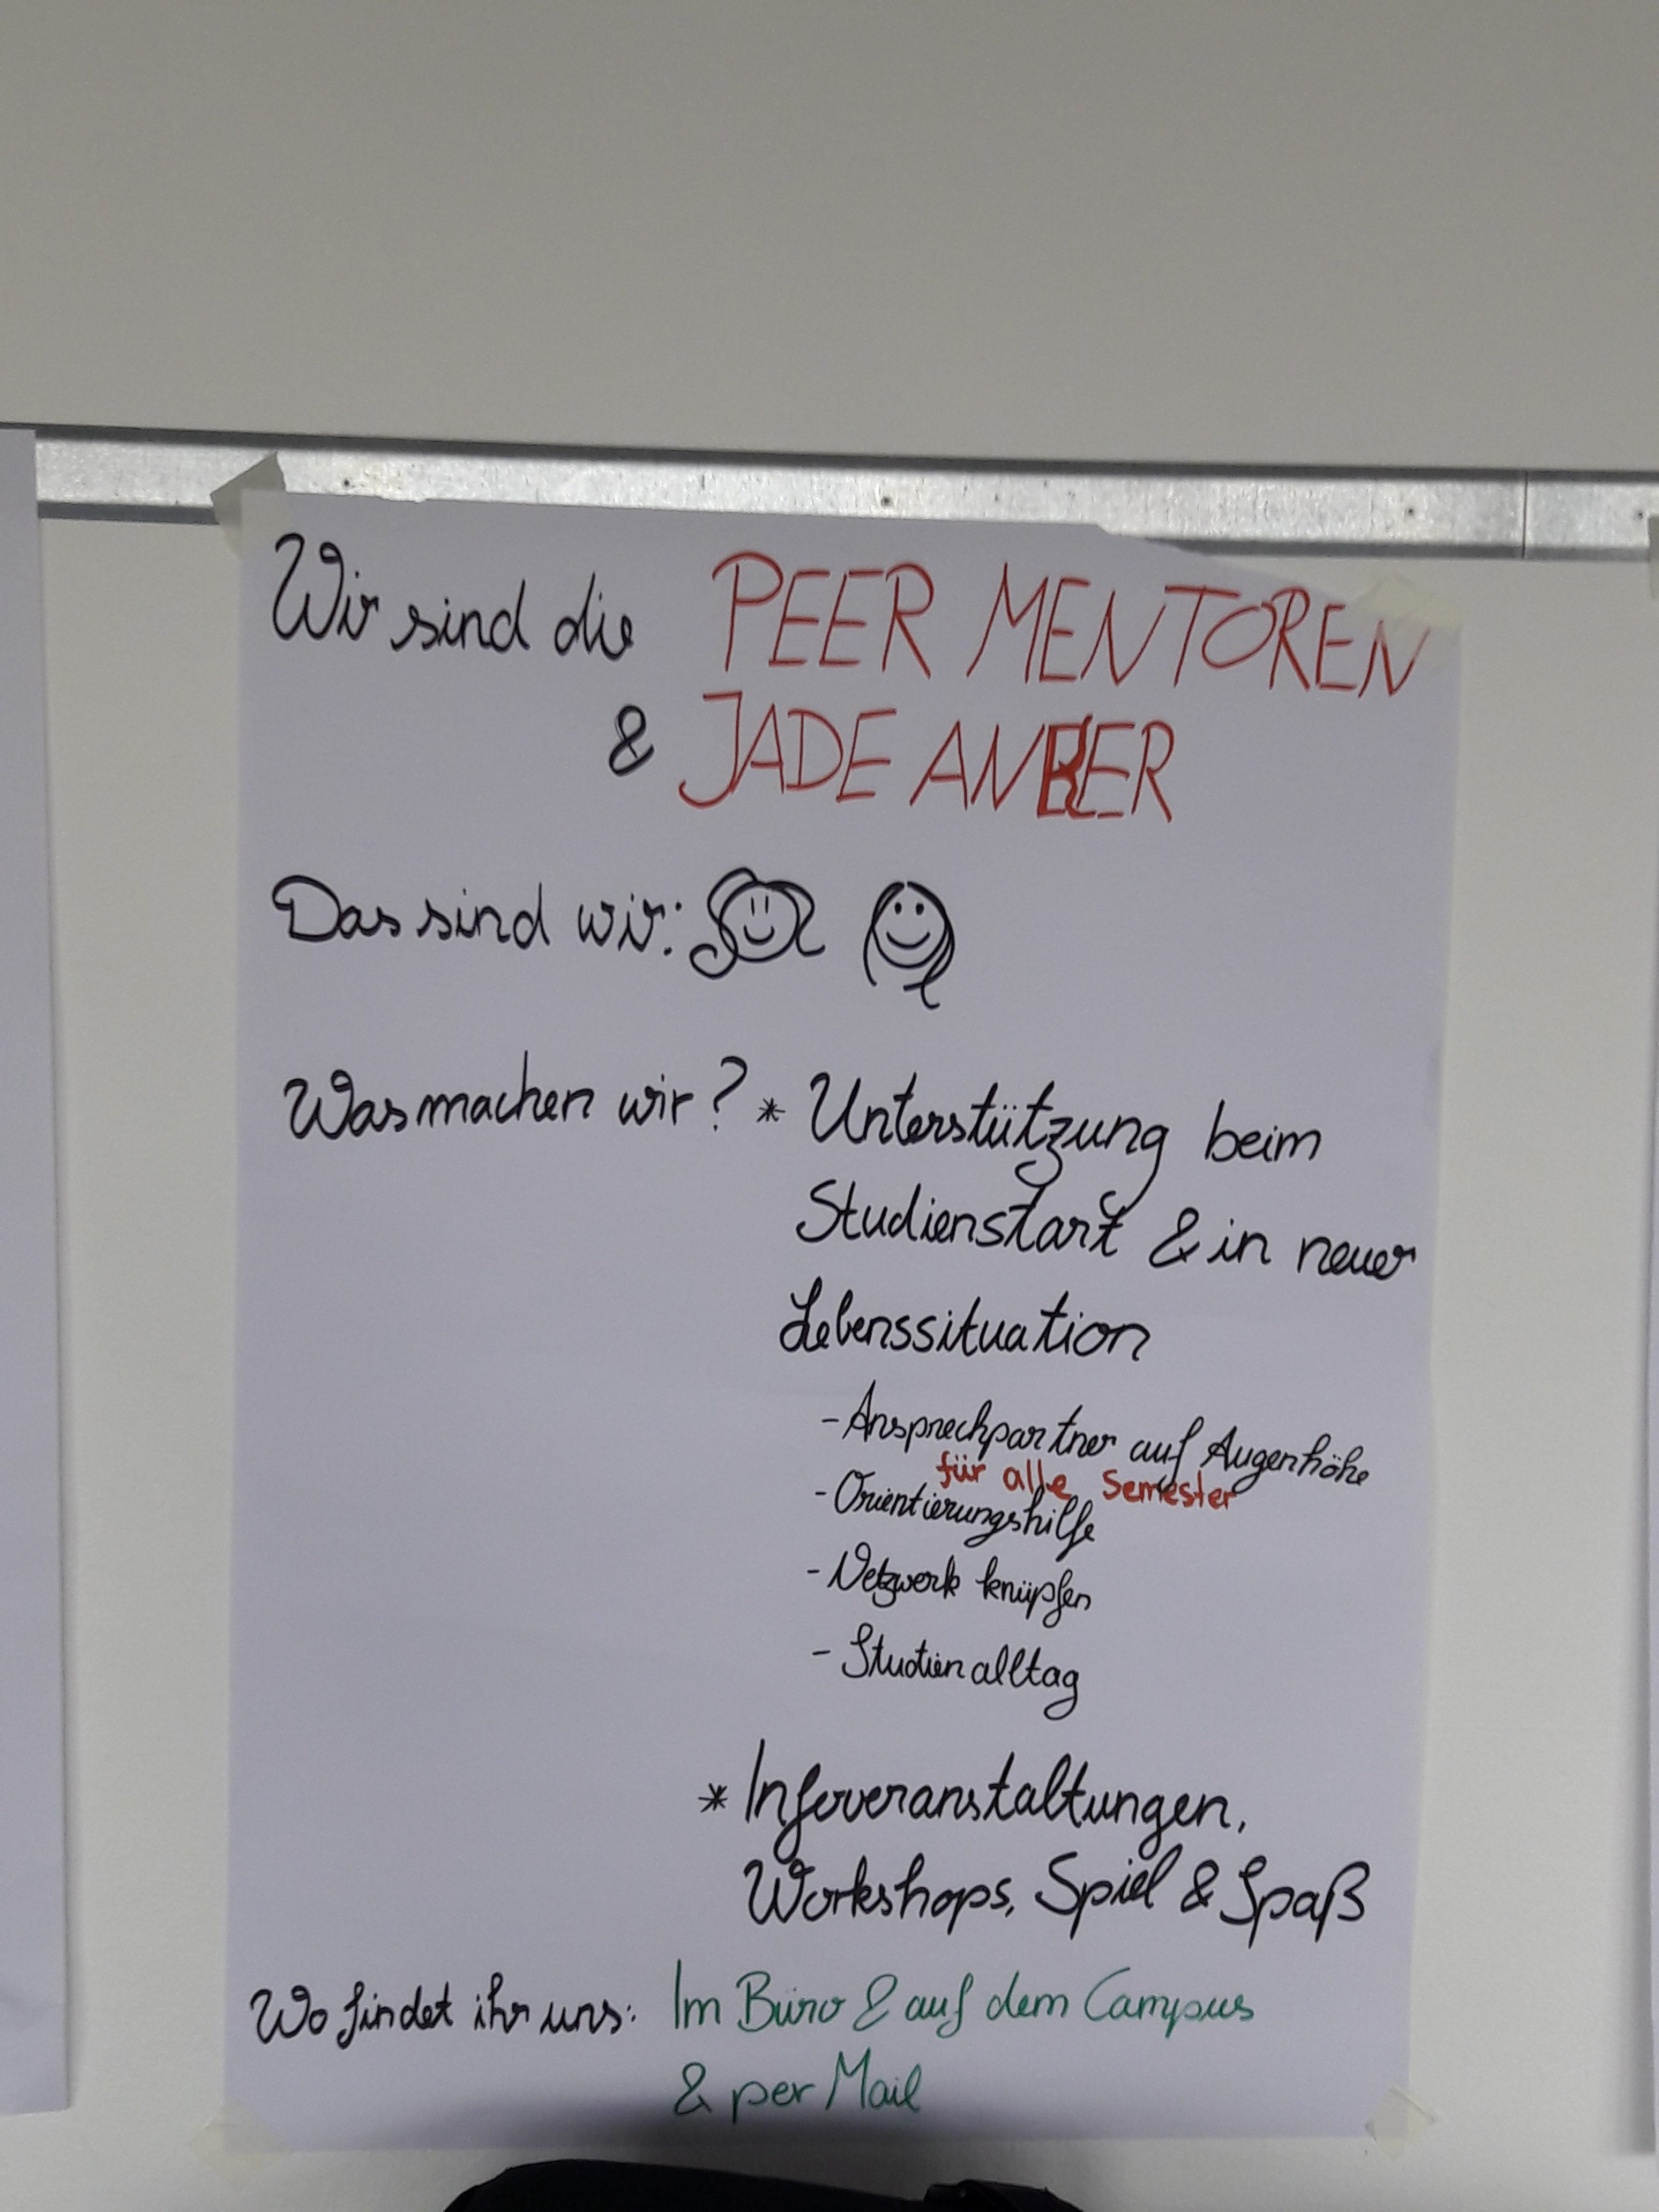 Wir sind die PEER MENTOREN
& JADE ANKER
Das sind wir:
Was machen wir? * Unterstützung beim
Studienstart & in neuer
Lebenssituation
- Ansprechpartner auf Augenhöhe
für alle Semester
- Orientierungshilfe
- Netzwerk knüpfen
- Studienalltag
* Infoveranstaltungen,
Workshops, Spiel & Spaß
Wo findet ihr uns: Im Büro & auf dem Campus
& per Mail